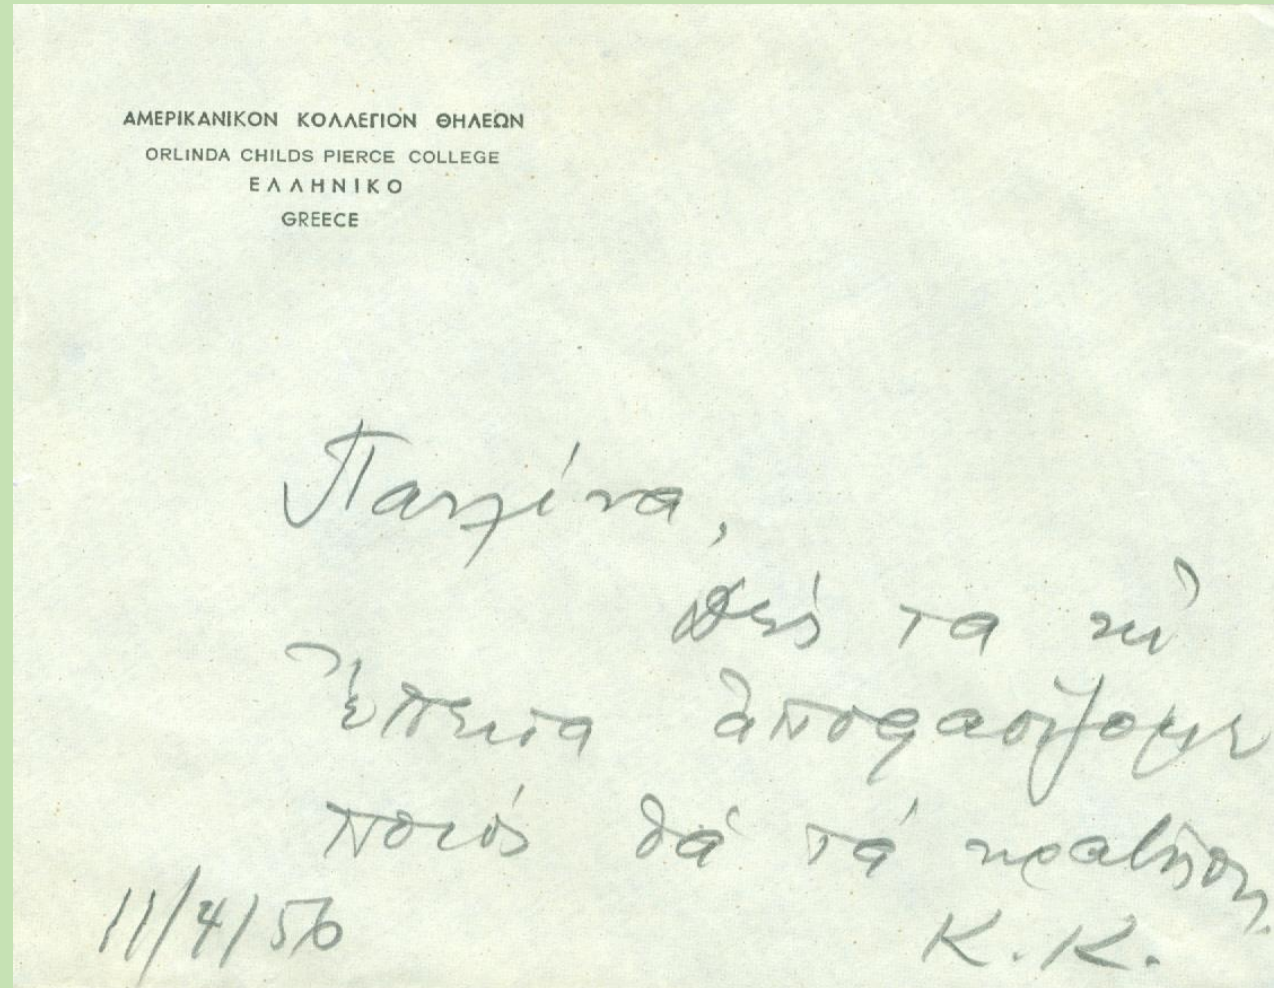 ΑΜΕΡΙΚΑΝΙΚΟΝ ΚΟΛΛΕΓΙΟΝ ΘΗΛΕΩΝ
ORLINDA CHILDS PIERCE COLLEGE
ΕΛΛΗΝΙΚΟ
GREECE
Παυλίνα,
Δες τα κι'
ἔπειτα ἀποφασίζουμε
ποιός θά τά κρατήση.
11/4/56
Κ.Κ.